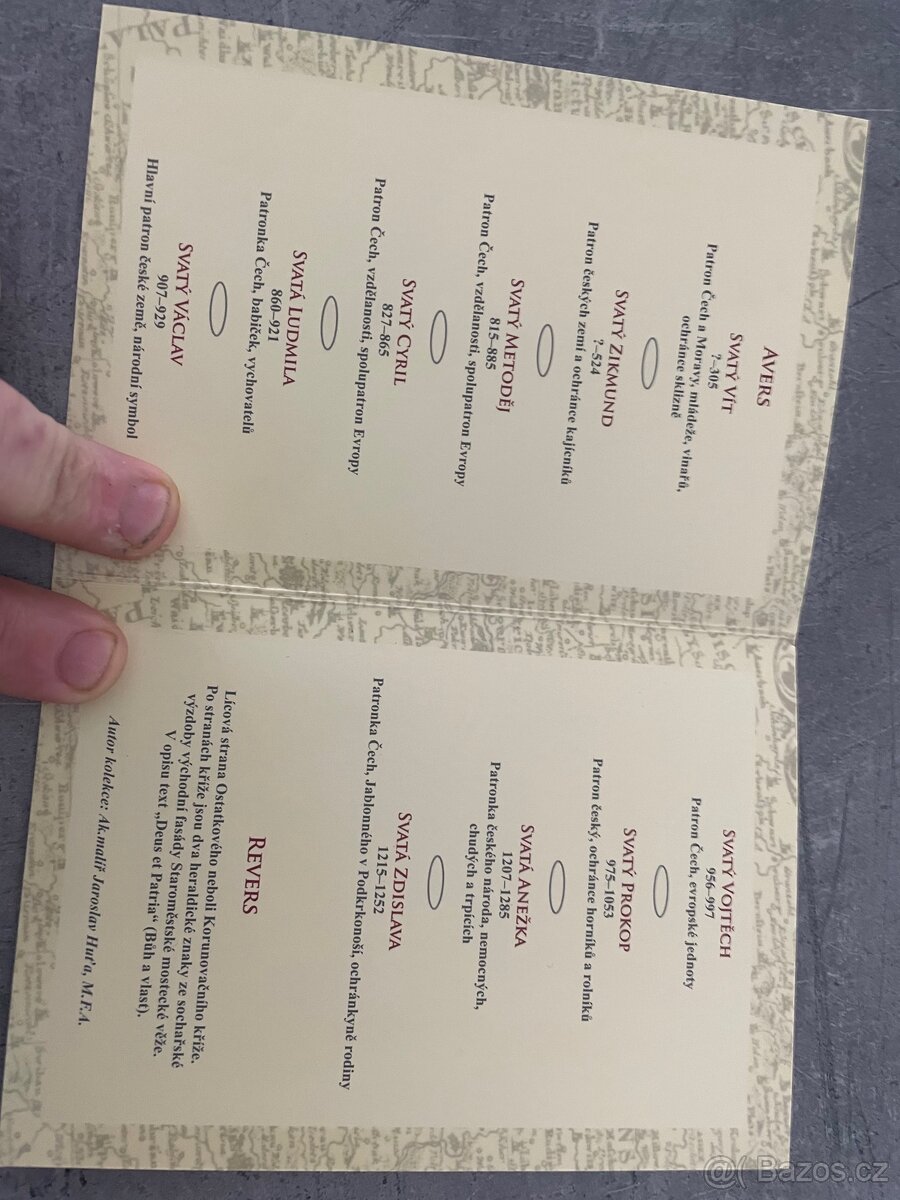 AVERS
SVATÝ VÍT
?–305
Patron Čech a Moravy, mládeže, vinařů,
ochránce sklizně
SVATÝ ZIKMUND
?–524
Patron českých zemí a ochránce kajícníků
SVATÝ METODĚJ
815–885
Patron Čech, vzdělanosti, spolupatron Evropy
SVATÝ CYRIL
827–865
Patron Čech, vzdělanosti, spolupatron Evropy
SVATÁ LUDMILA
860–921
Patronka Čech, babiček, vychovatelů
SVATÝ VÁCLAV
907–929
Hlavní patron české země, národní symbol
SVATÝ VOJTĚCH
956–997
Patron Čech, evropské jednoty
SVATÝ PROKOP
975–1053
Patron český, ochránce horníků a rolníků
SVATÁ ANEŽKA
1207–1285
Patronka českého národa, nemocných,
chudých a trpících
SVATÁ ZDISLAVA
1215–1252
Patronka Čech, Jablonného v Podkrkonoší, ochránkyně rodiny
REVERS
Lícová strana Ostatkového neboli Korunovačního kříže.
Po stranách kříže jsou dva heraldické znaky ze sochařské
výzdoby východní fasády Staroměstské mostecké věže.
V opisu text „Deus et Patria“ (Bůh a vlast).
Autor kolekce: Ak.malíř Jaroslav Huťa, M.F.A.
Bazos.cz